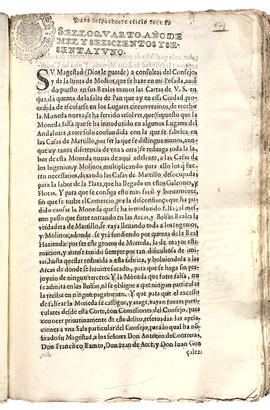 Para despachos de oficio
SELLO QVARTO, AÑO DE
MIL Y SEISCIENTOS Y SE-
SENTA Y VNO.
SV Magestad (Dios le guarde) a consultas del Consejo,
de la Iunta de Medios, que se haze en mi Posada, auiẽ
do puesto en sus Reales manos las Cartas de V. S. en
que dà quenta, de la falta de Pan que ay en essa Ciudad, pro-
cedida de escusarse en los Lugares circunvezinos, de recebir
la Moneda nueva; se ha servido resolver, que supuesto que la
Moneda falsa que se ha introducido en algunos Lugares del
Andaluzia, corre tan confundida con la que se fabrica en
las Casas de Martillo, por ser la que se distingue menos, aun-
que ay tanta diferencia de vna a otra, se reduzga toda la la-
bor de esta Moneda nueva de aqui adelante, a las Casas de
los Ingenios, y Molinos, multiplicando para ello los que fue-
ren necessarios, dexando las Casas de Martillo, desocupadas
para la labor de la Plata, que ha llegado en estos Galeones, y
Flotas. Y para que se consiga esto mas facil y brevemente,
sin que se turbe el Comercio, por la desconfiança que ha po-
dido causar la Moneda que se ha introducido falsa, al mesmo
passo que fuere entrando en las Arcas, y Bolsas Reales la
verdadera de Martillo, se vaya llevando toda a los Ingenios,
y Molinos, adonde se yrà fundiendo por quenta de la Real
Hazienda: por ser este genero de Moneda, la de mayor esti-
macion, y averse tenido siempre por tan dificultosas de imi-
tar, hasta quedar reduzida a ella, fabricada, y bolviendola a las
Arcas de donde se huviere sacado, para que se haga sin per-
juyzio de ningun tercero. Y la Moneda que fuere falsa, no
se admita en las Bolsas, ni se obligue a que ningun particular
la reciba en ningun pagamento. Y que para que el excesso
de falsear la Moneda se castigue, y atage, vayan diferentes
Iuezes desde esta Corte, con Comisiones del Consejo, para
conocer privativamente de este delito, reservadas las ape-
laciones a vna Sala particular del Consejo, para lo qual ha nõ-
brado su Magestad, a los señores Don Antonio de Contreras,
Don Francisco Ramos, Don Iuan de Arce, y Don Iuan Gon
çalez